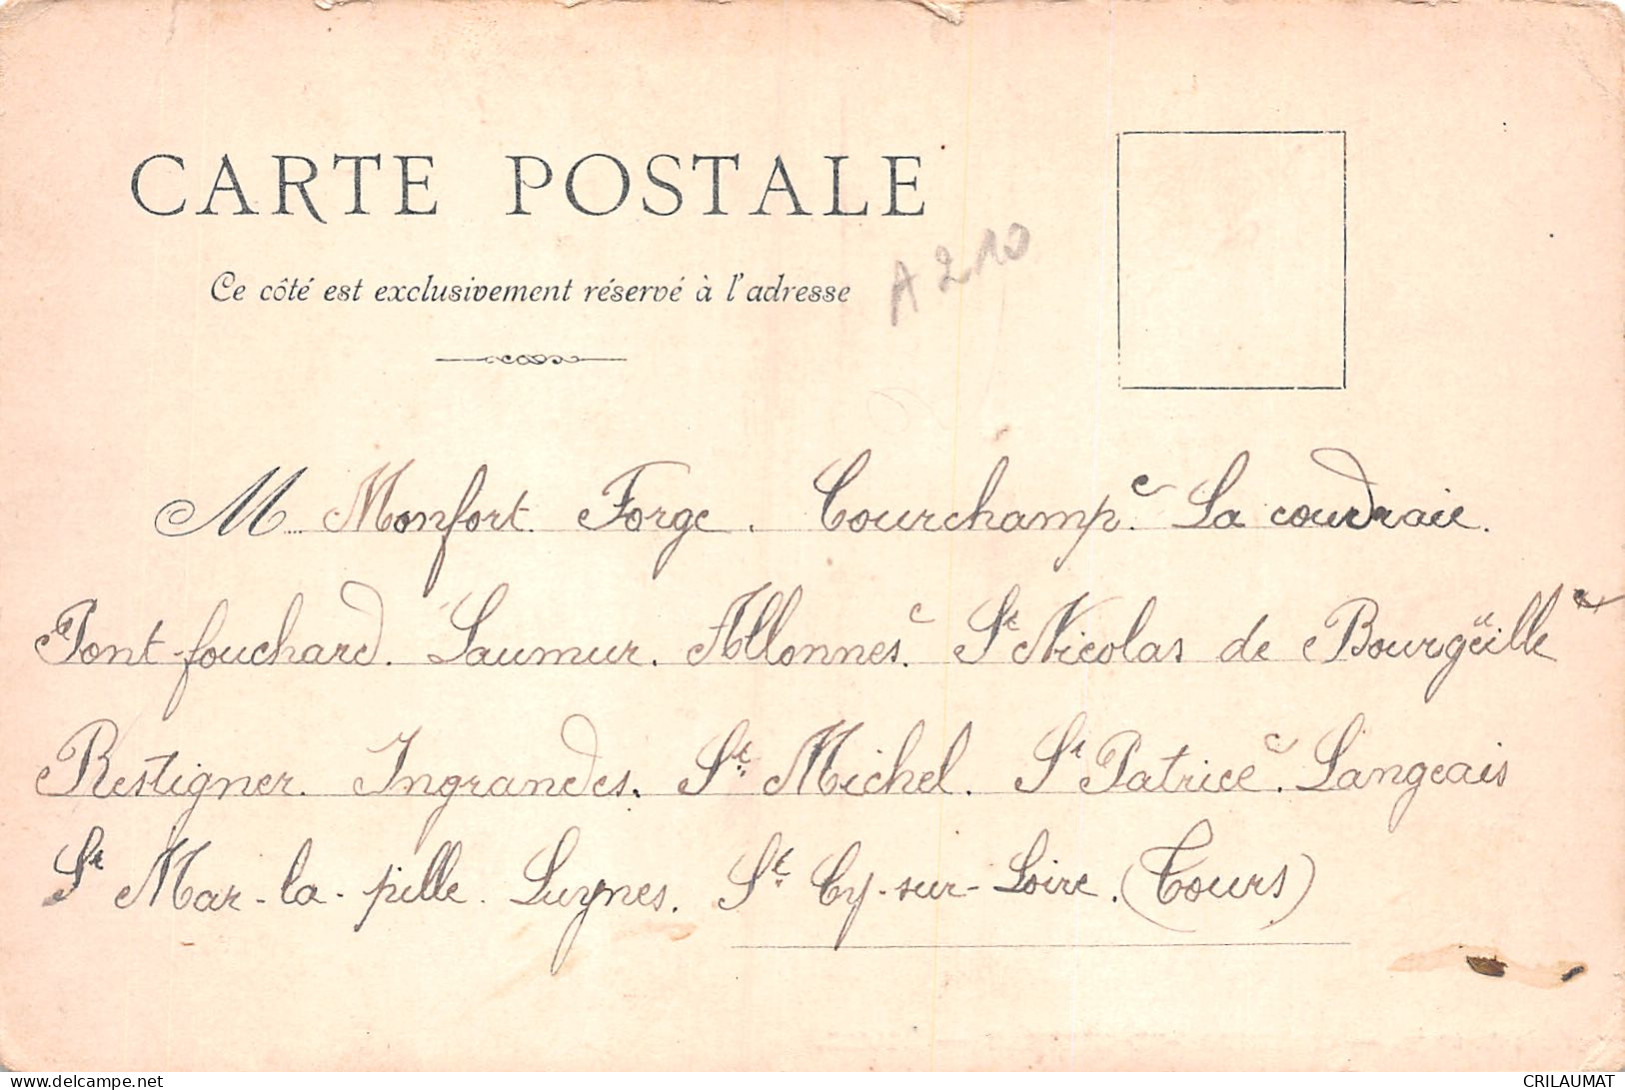 CARTE POSTALE
A210
Ce côté est exclusivement réservé à l'adresse
M Monfort. Forge. Courchamp.e La coudraie.
Pont-fouchard. Saumur. Allonnes.c St Nicolas de Bourgëille c
Restigner. Ingrandes. St. Michel. St Patrice c. Langeais
St Mar-la-pille. Luynes. St. Cy-sur-Loire. (Tours)
delcampe.net
CRILAUMAT